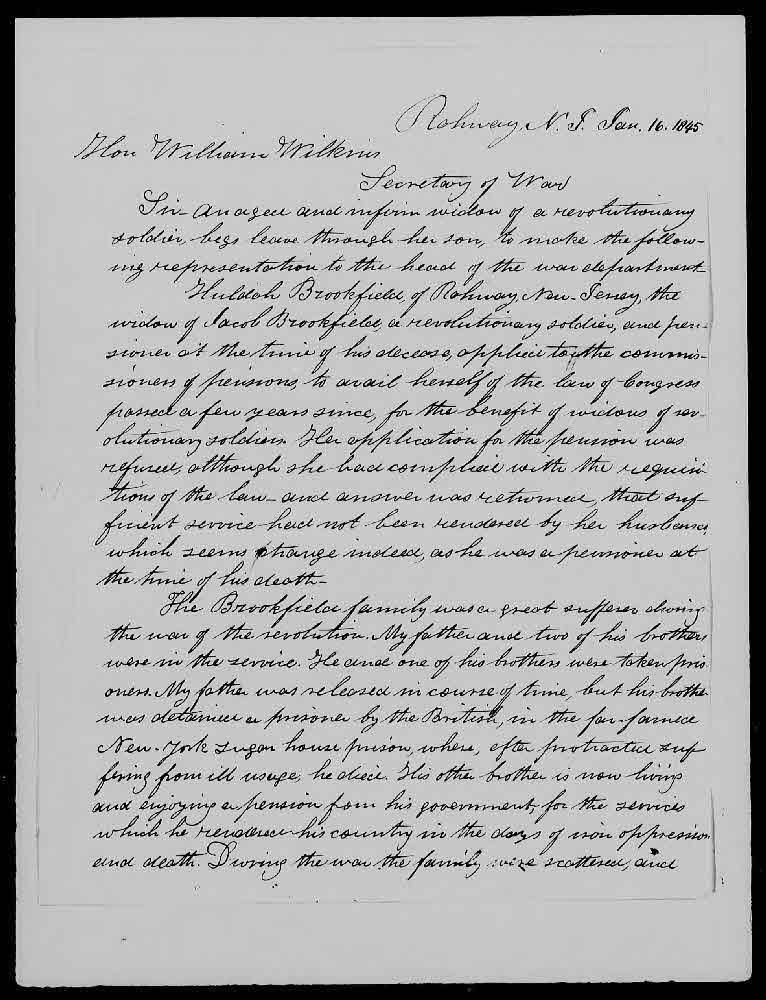 Rahway, N. J. Jan. 16. 1845
Hon William Wilkins
Secretary of War
Sir An aged and infirm widow of a revolutionary
soldier, begs leave through her son, to make the follow-
ing representation to the head of the war department
Huldah Brookfield, of Rahway New-Jersey, the
widow of Jacob Brookfield, a revolutionary soldier, and pen-
sioner at the time of his decease, applied to the commis-
sioners of pensions, to avail herself of the law of Congress
passed a few years since, for the benefit of widows of rev-
olutionary soldiers. Her application for the pension was
refused, although she had complied with the requisi
tions of the law - and answer was returned, that suf
ficient service had not been rendered by her husband,
which seems strange indeed, as he was a pensioner at
the time of his death -
The Brookfield family was a great sufferer during
the war of the revolution. My father and two of his brothers
were in the service. He and one of his brothers were taken pris
oners. My father was released in course of time, but his brother
was detained a prisoner by the British, in the far-famed
New-York sugar house prison, where, after protracted suf
fering from ill usage, he died. His other brother is now living
and enjoying a pension from his government, for the services
which he rendered his country in the days of iron oppression
and death. During the war the family were scattered, and